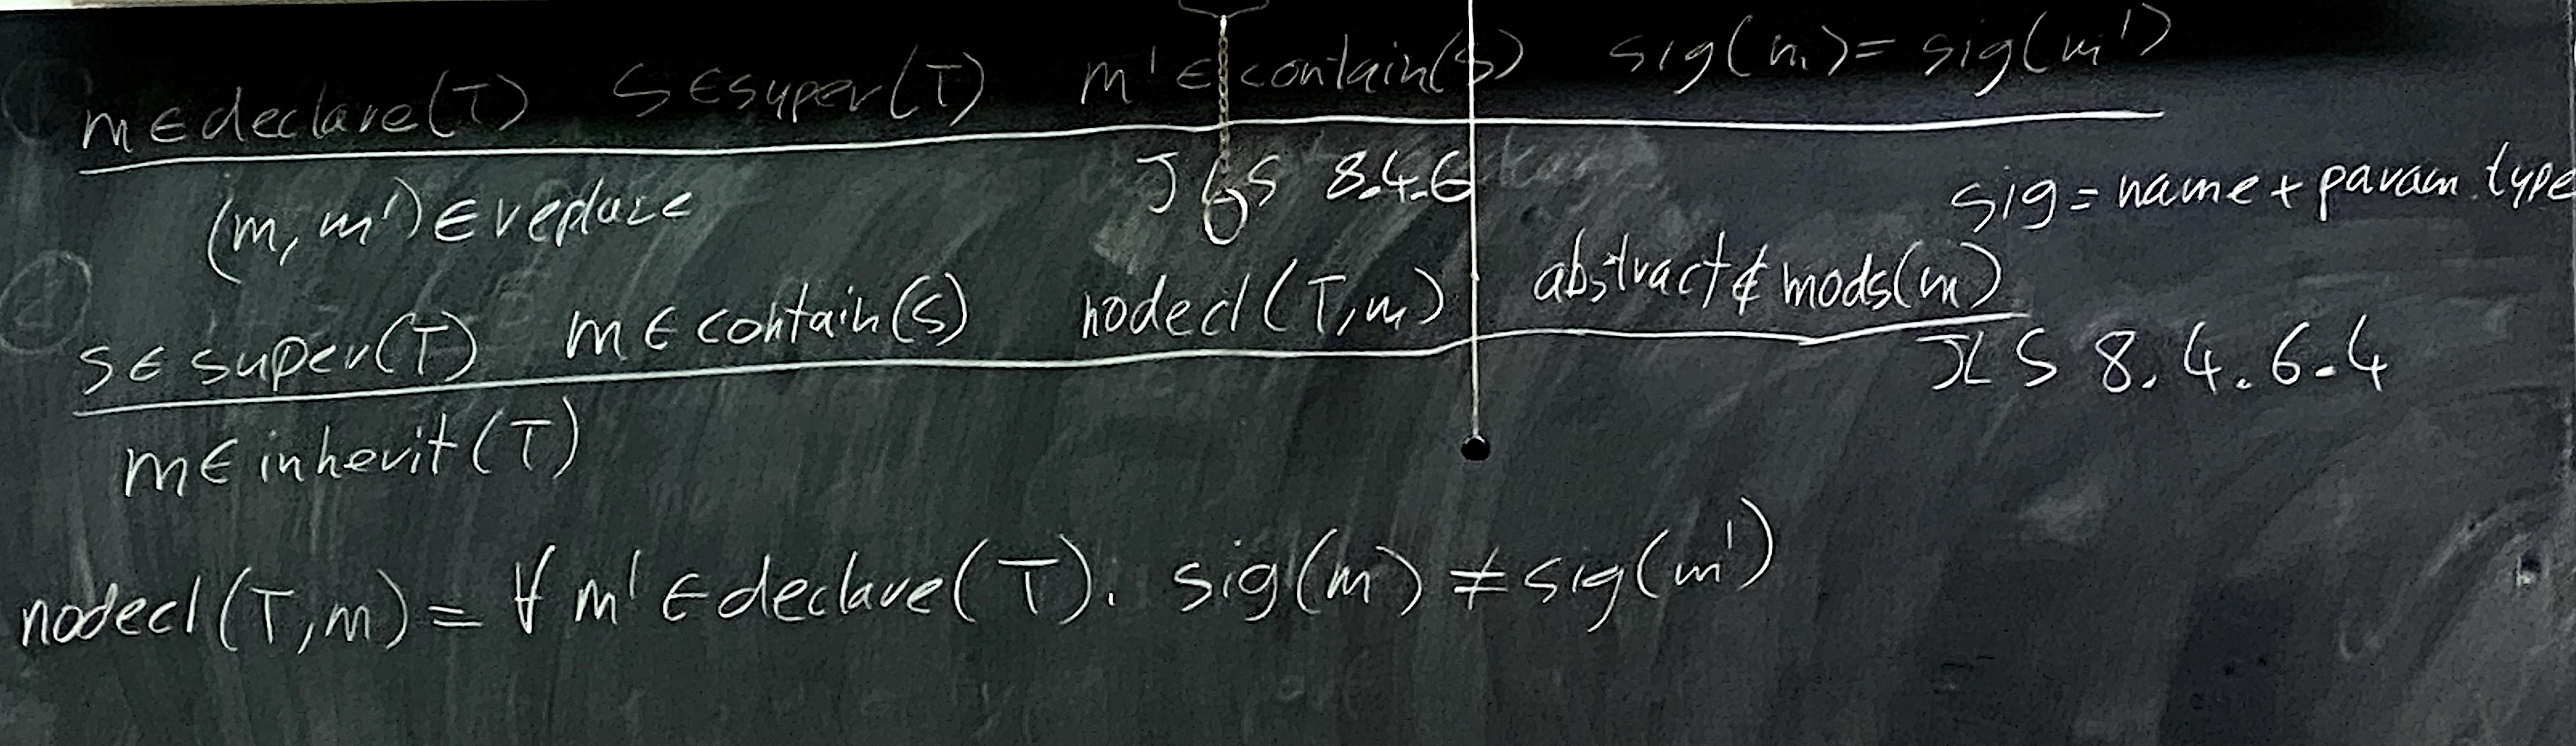 ① m ∈ declare(T) S ∈ super(T) m' ∈ contain(S) sig(m) = sig(m')
(m, m') ∈ replace JLS 8.4.6 sig = name + param. type
② S ∈ super(T) m ∈ contain(S) nodecl(T, m) abstract ∉ mods(m)
m ∈ inherit(T) JLS 8.4.6.4
nodecl(T, m) = ∀ m' ∈ declare(T). sig(m) ≠ sig(m')